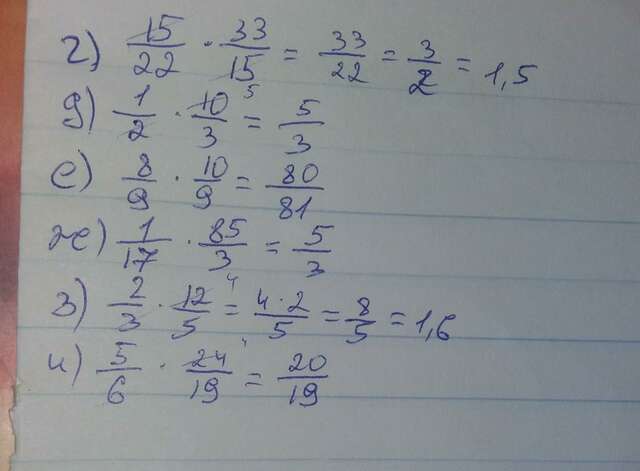 г) 15/22 · 33/15 = 33/22 = 3/2 = 1,5
д) 1/2 · 10/3 5 = 5/3
е) 8/9 · 10/9 = 80/81
ж) 1/17 · 85/3 = 5/3
з) 2/3 · 12/5 4 = 4·2/5 = 8/5 = 1,6
и) 5/6 · 24/19 = 20/19